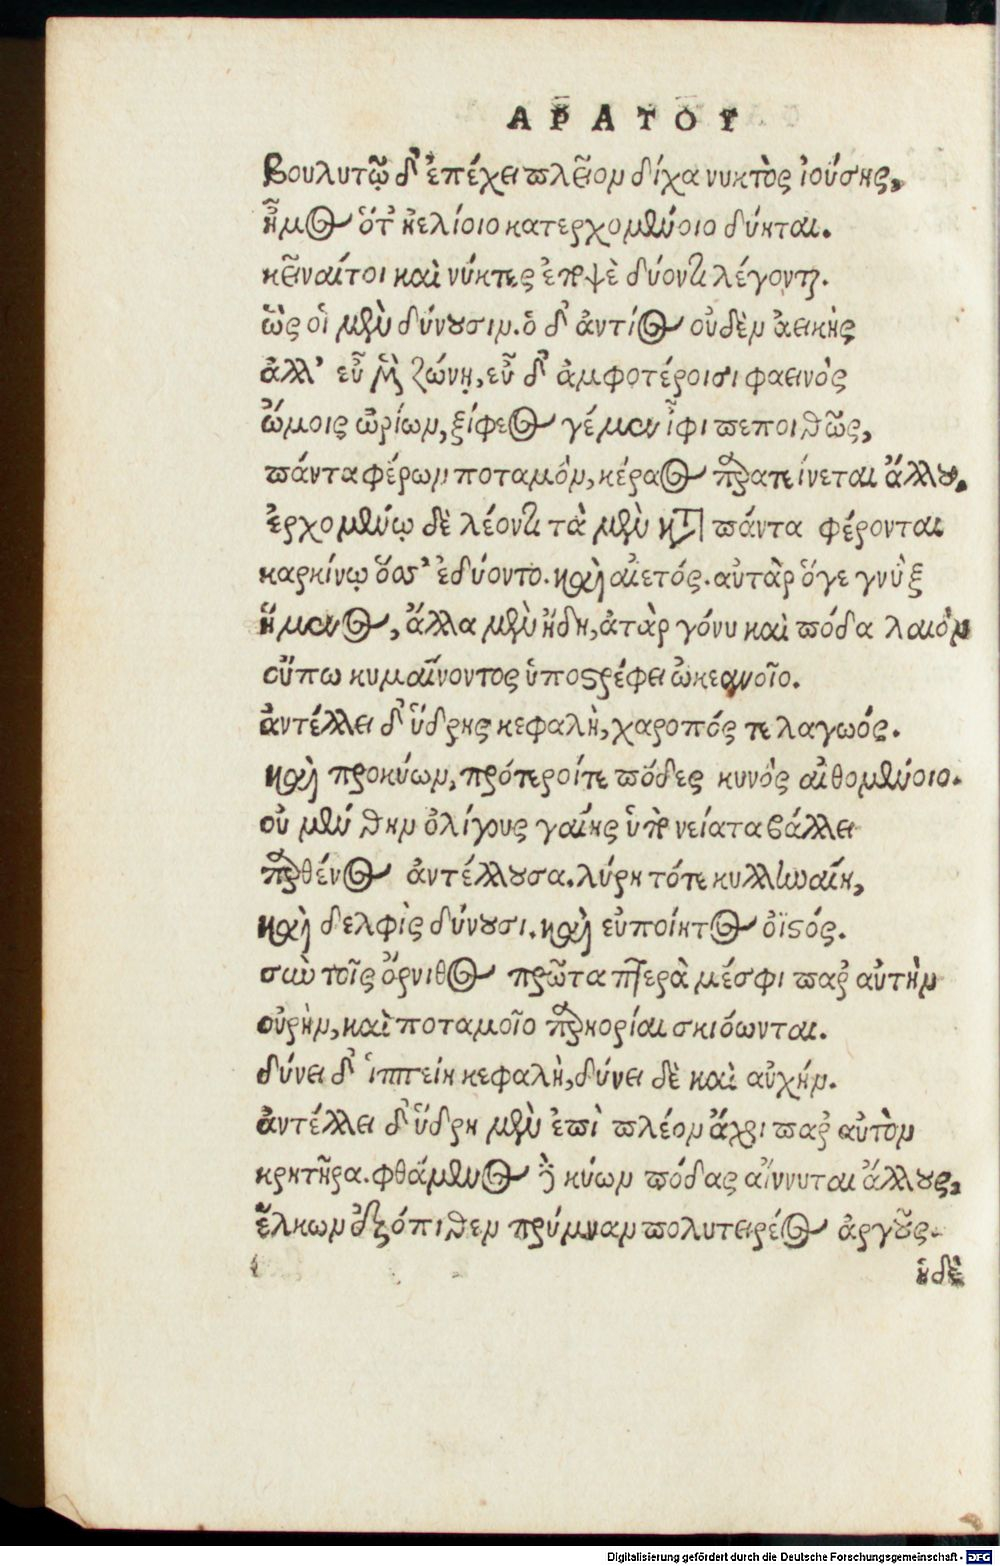 ΑΡΑΤΟΥ
βουλυτῷ δ' ἐπέχει πλεῖον δίχα νυκτὸς ἰούσης,
ἦμος ὅτ' ἠελίοιο κατερχομένοιο δύηται.
κεῖναίτοι καὶ νύκτες ἐπ' ὀψὲ δύοντι λέγονται.
ὣς οἱ μὲν δύνουσιν. ὁ δ' ἀντίος οὐδὲν ἀεικὴς
ἀλλ' εὖ μὲν ζώνῃ, εὖ δ' ἀμφοτέροισι φαεινὸς
ὤμοις ὠρίων, ξίφεος γέ μὲν ἶφι πεποιθὼς,
πάντα φέρων ποταμὸν, κέραος παρατείνεται ἄλλου.
ἐρχομένῳ δὲ λέοντι τὰ μὲν κατὰ πάντα φέρονται
καρκίνῳ ὅσσ' ἐδύοντο. καὶ αἰετός. αὐτὰρ ὅγε γνὺξ
ἥμενος, ἄλλα μὲν ἤδη, ἀτὰρ γόνυ καὶ πόδα λαιὸν
οὔπω κυμαίνοντος ὑποστρέφει ὠκεανοῖο.
ἀντέλλει δ' ὕδρης κεφαλὴ, χαροπός τε λαγωός.
καὶ προκύων, πρότεροίτε πόδες κυνὸς αἰθομένοιο.
οὐ μέν θην ὀλίγους γαίης ὑπὸ νείατα βάλλει
παρθένος ἀντέλλουσα. λύρη τότε κυλληναίη,
καὶ δελφὶς δύνουσι. καὶ εὐποίητος ὀϊστός.
σὺν τοῖς ὄρνιθος πρῶτα πτερὰ μέσφι παρ' αὐτὴν
οὐρὴν, καὶ ποταμοῖο παρηορίαι σκιόωνται.
δύνει δ' ἱππείη κεφαλὴ, δύνει δὲ καὶ αὐχήν.
ἀντέλλει δ' ὕδρη μὲν ἐπὶ πλέον ἄχρι παρ' αὐτὸν
κρητῆρα. φθάμενος δὲ κύων πόδας αἴνυται ἄλλους,
ἕλκων ἐξόπιθεν πρύμναν πολυτειρέος ἀργοῦς.
ἡ δὲ
Digitalisierung gefördert durch die Deutsche Forschungsgemeinschaft - DFG